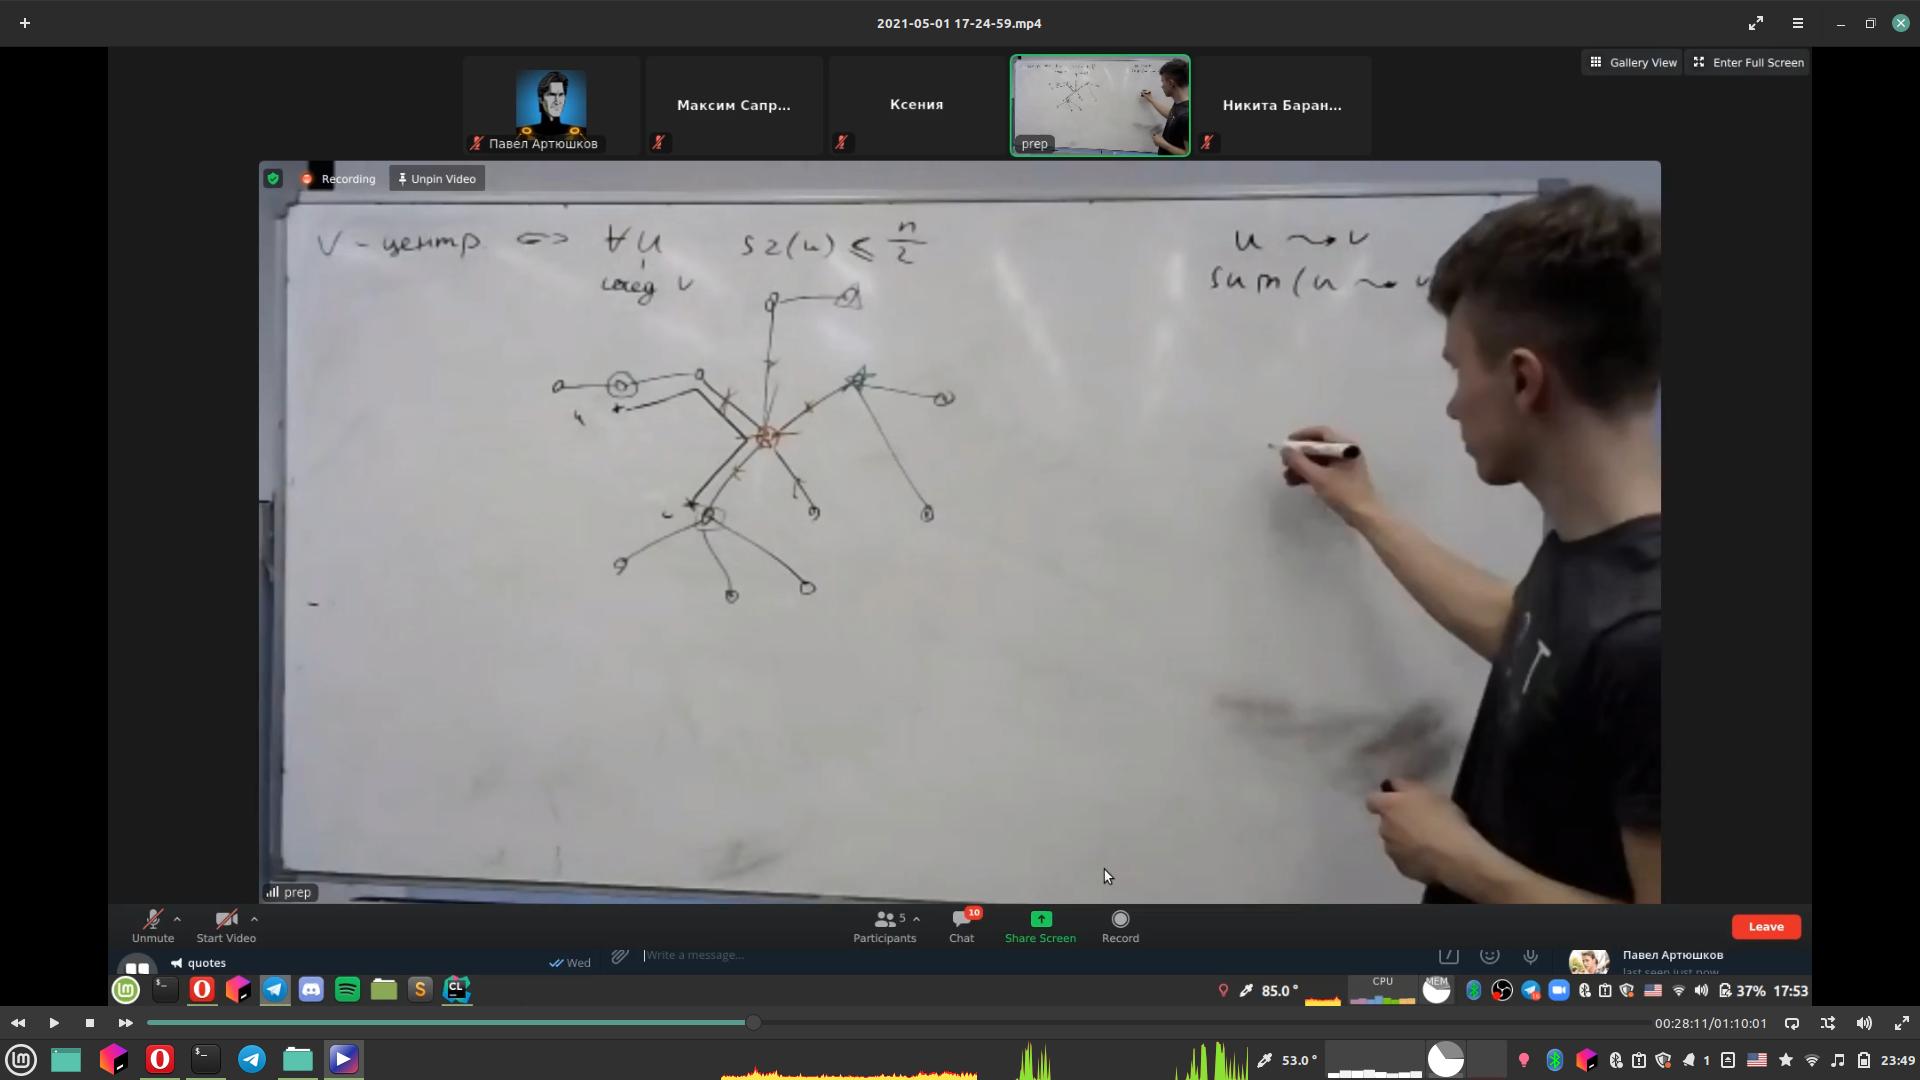 2021-05-01 17-24-59.mp4
Gallery View
Enter Full Screen
Павел Артюшков
Максим Сапр...
Ксения
prep
Никита Баран...
Recording
Unpin Video
V - центр <=> ∀ u sz(u) ≤ n/2
след v
u ⇝ v
sum(u ⇝ v
prep
Unmute
Start Video
Participants 5
Chat 10
Share Screen
Record
Leave
quotes
Wed
Write a message...
Павел Артюшков
last seen just now
85.0 °
CPU
MEM
37% 17:53
00:28:11/01:10:01
53.0 °
1
23:49